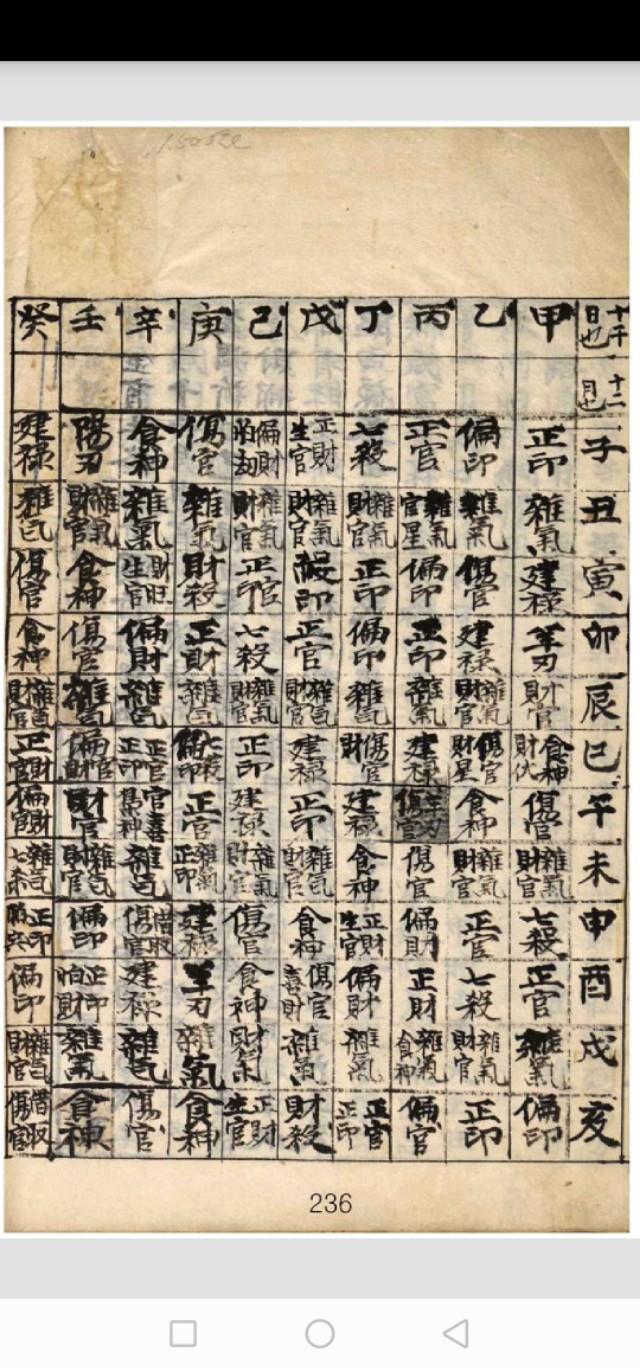 十干日也 十二月也 子 丑 寅 卯 辰 巳 午 未 申 酉 戌 亥
甲 正印 雜氣 建祿 羊刃 財官 食神財 傷官 雜氣財官 七殺 正官 雜氣 偏印
乙 偏印 雜氣 傷官 建祿 雜氣財官 傷官財星 食神 雜氣財官 正官 七殺 雜氣財官 正印
丙 正官 雜氣官星 偏印 正印 雜氣 建祿 羊刃傷官 傷官 偏財 正財 雜氣食神 偏官
丁 七殺 雜氣財官 正印 偏印 雜氣 傷官財 建祿 食神 正財生官 偏財 雜氣 正官正印
戊 正財生官 雜氣財官 印 正官 雜氣財官 建祿 正印 雜氣財官 食神 傷官喜財 雜氣 財殺
己 偏財怕劫 雜氣財官 官正印 七殺 雜氣財官 正印 建祿 雜氣財官 傷官 食神 財氣 正財生官
庚 傷官 雜氣 財殺 正財 雜氣 七殺偏印 正官 雜氣正印 建祿 羊刃 雜氣 食神
辛 食神 雜氣 財旺生官 偏財 雜氣 正官正印 官喜神 雜氣 借取傷官 建祿 雜氣 傷官
壬 陽刃 雜氣財官 食神 傷官 雜氣 偏官財 財官 雜氣財官 偏印 正印怕財 雜氣 食神
癸 建祿 雜气 傷官 食神 雜气財官 正財官 偏財官 雜气七杀 正印 偏印 雜气財官 借取傷官
236